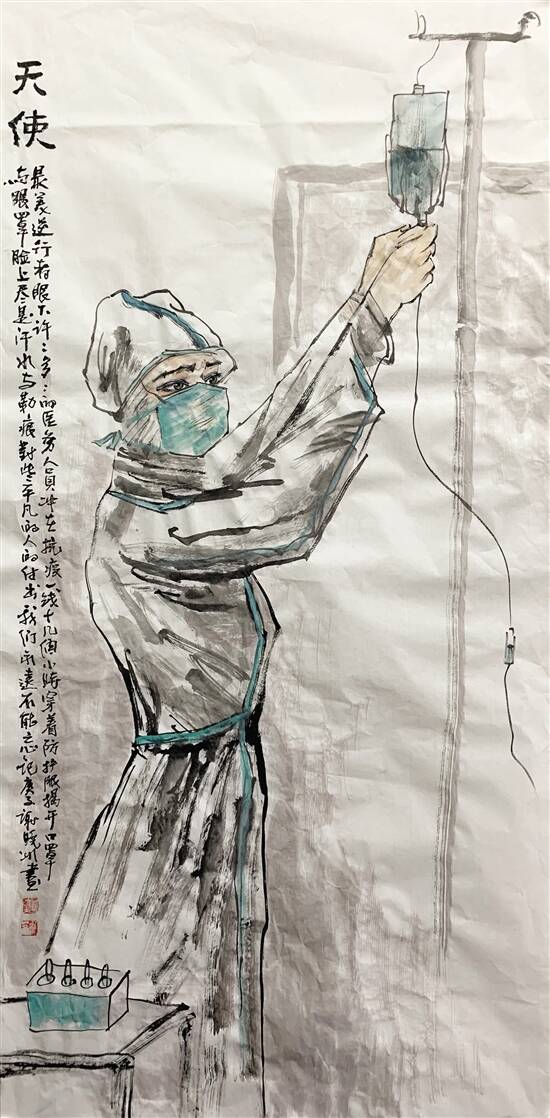 天使
最美逆行者眼下许〻多〻的医务人员冲在抗疫一线十几個小時穿着防护服揭开口罩
与眼罩脸上尽是汗水与勒痕對些平凡的人的付出我们永遠不能忘记庚子谢晓畫